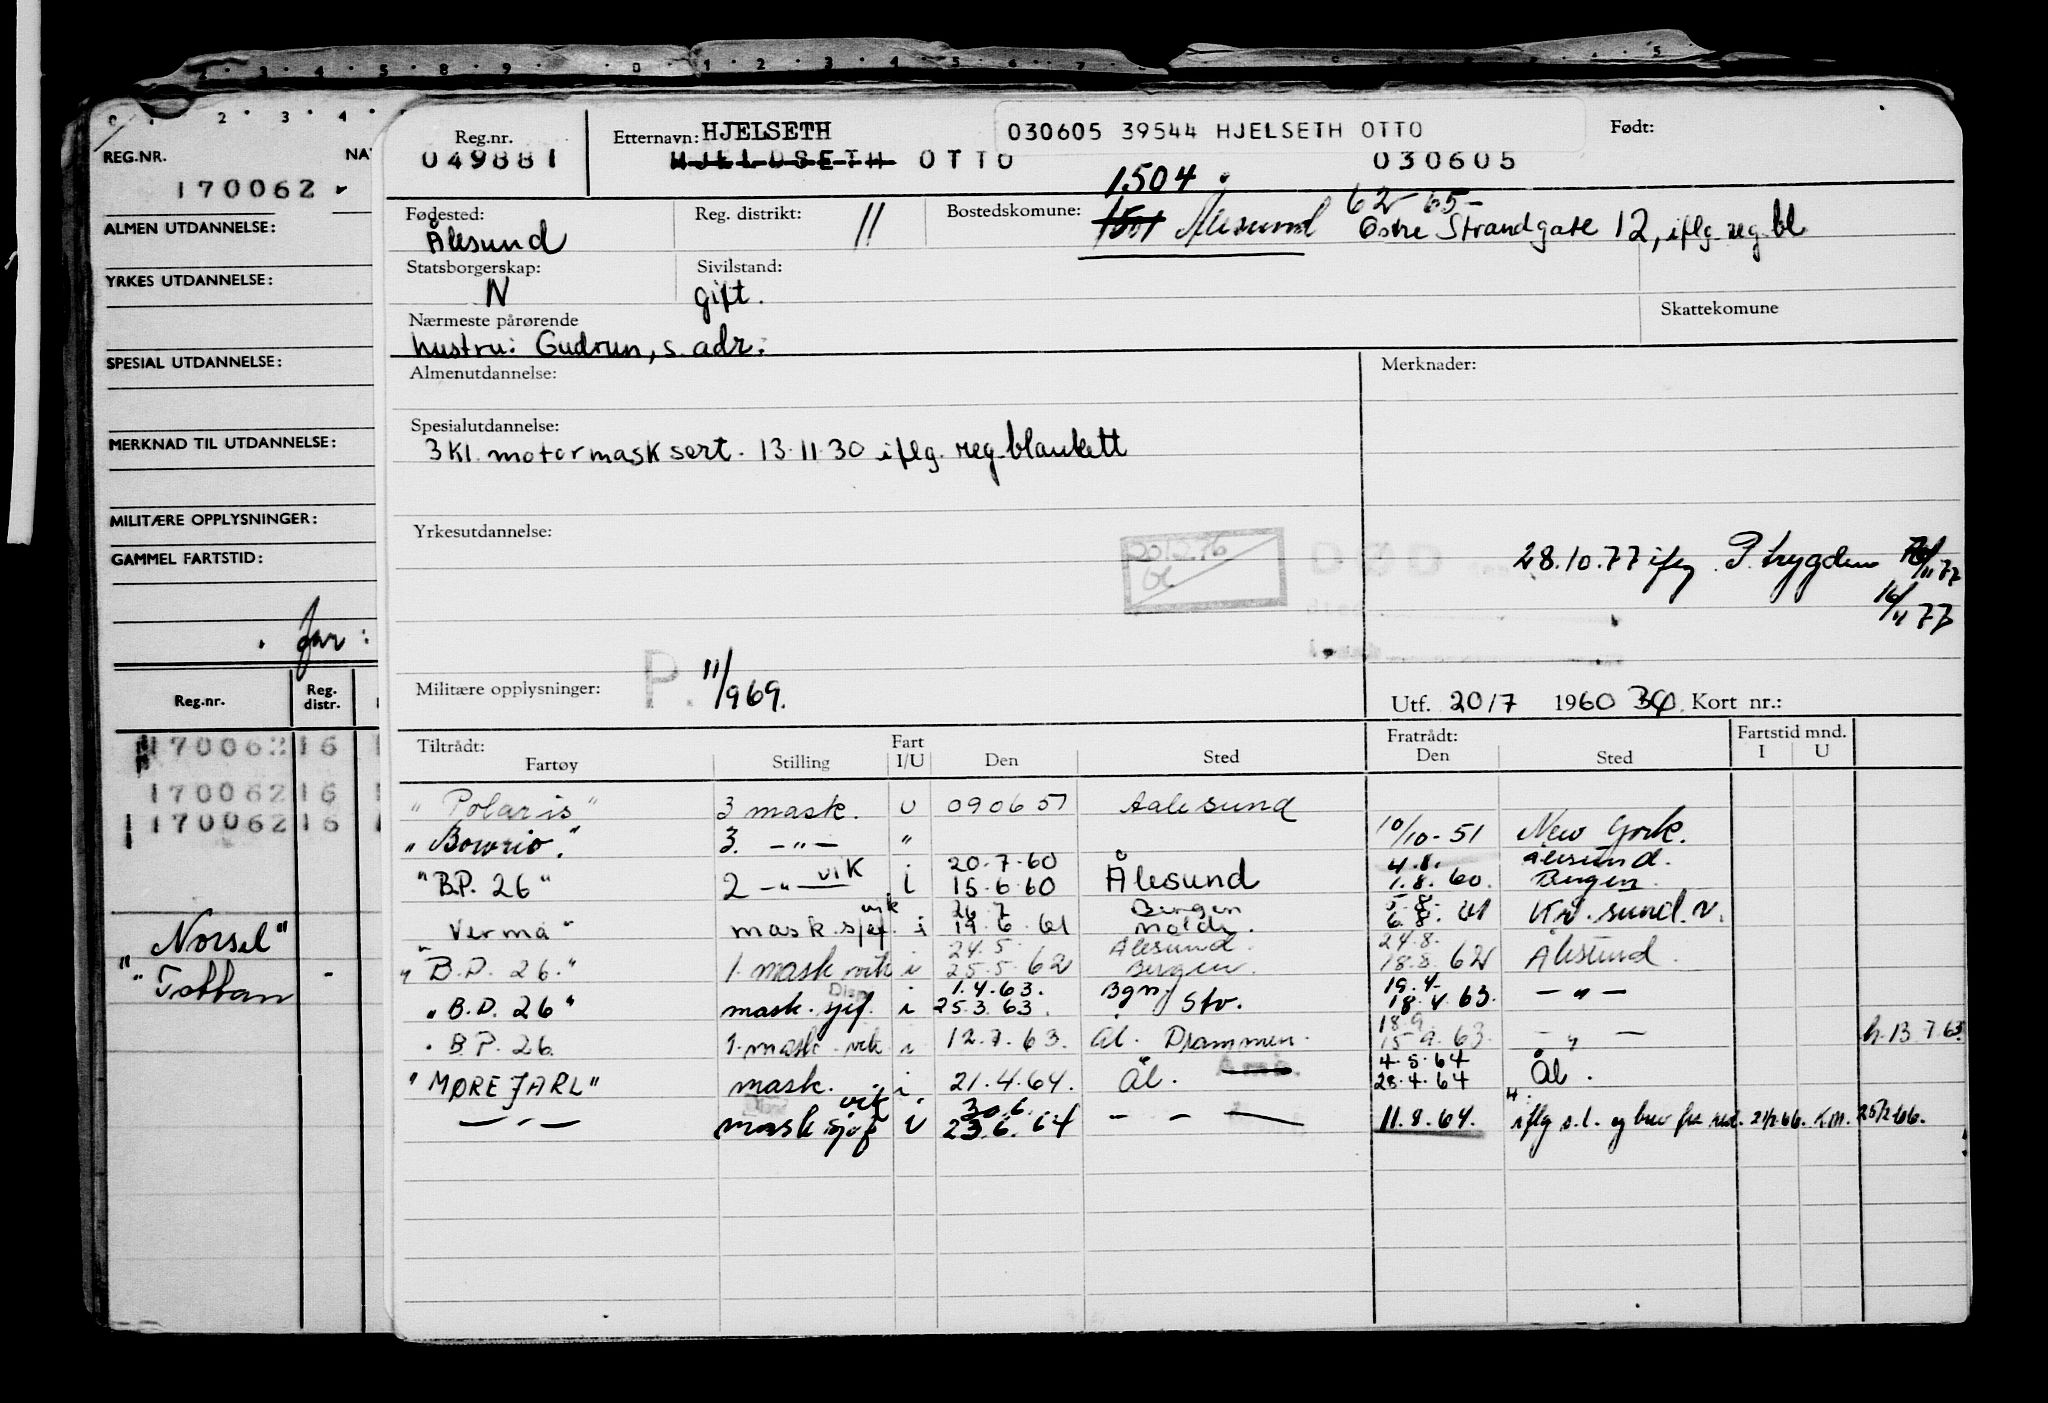 REG.NR. NA
170062
ALMEN UTDANNELSE:
YRKES UTDANNELSE:
SPESIAL UTDANNELSE:
MERKNAD TIL UTDANNELSE:
MILITÆRE OPPLYSNINGER:
GAMMEL FARTSTID:
far:
Reg.nr. Reg. distr.
170062 16
170062 16
170062 16
"Norsel"
"Tottan -
Reg.nr. Etternavn: HJELSETH 030605 39544 HJELSETH OTTO Født:
049881 HJELDSETH OTTO 030605
1504
Fødested: Reg. distrikt: 11 Bostedskomune: 1501 Ålesund 62-65-
Ålesund Østre Strandgate 12, iflg. reg.bl
Statsborgerskap: Sivilstand:
N gift.
Nærmeste pårørende Skattekomune
hustru: Gudrun, s. adr.
Almenutdannelse: Merknader:
Spesialutdannelse:
3 kl. motormask sert. 13.11.30 iflg. reg.blankett
Yrkesutdannelse:
20.12.76
DØD 28.10.77 iflg. P. trygden
16/11 77
Militære opplysninger: P. 11/969. Utf. 20/7 1960 Kort nr.:
Tiltrådt: Fart Fratrådt: Fartstid mnd.
Fartøy Stilling I/U Den Sted Den Sted I U
"Polaris" 3 mask. U 090651 Aalesund
"Bowrio." 3. -"- " 10/10-51 New York.
"B.P. 26" 2 -"- vik i 20.7.60 15.6.60 Ålesund 4.8. 1.8.60. Ålesund. Bergen
"Verma" mask.sjef. vik i 26.7 19.6.61 Bergen Molde. 5.8. 6.8.61 Kr.sund.N.
"B.P. 26." 1. mask vik i 24.5. 25.5.62 Ålesund. Bergen. 24.8. 18.8.62 Ålesund.
"B.P. 26" mask.sjef. Disp i 1.4.63. 25.3.63. Bgn. Stv. 19.4. 18.4.63. -"-
"B.P. 26. 1. mask. vik i 12.7.63. Ål. Drammen. 18.9. 15.9.63. -"- h. 13.7.63.
"MØREJARL" mask. i 21.4.64. Ål. 4.5.64 28.4.64 Ål.
-"- mask sjef vik U 30.6. 23.6.64 - - - 11.8.64. iflg s.l. og brev fra red. 21/2.66. K.M. 25/2-66.